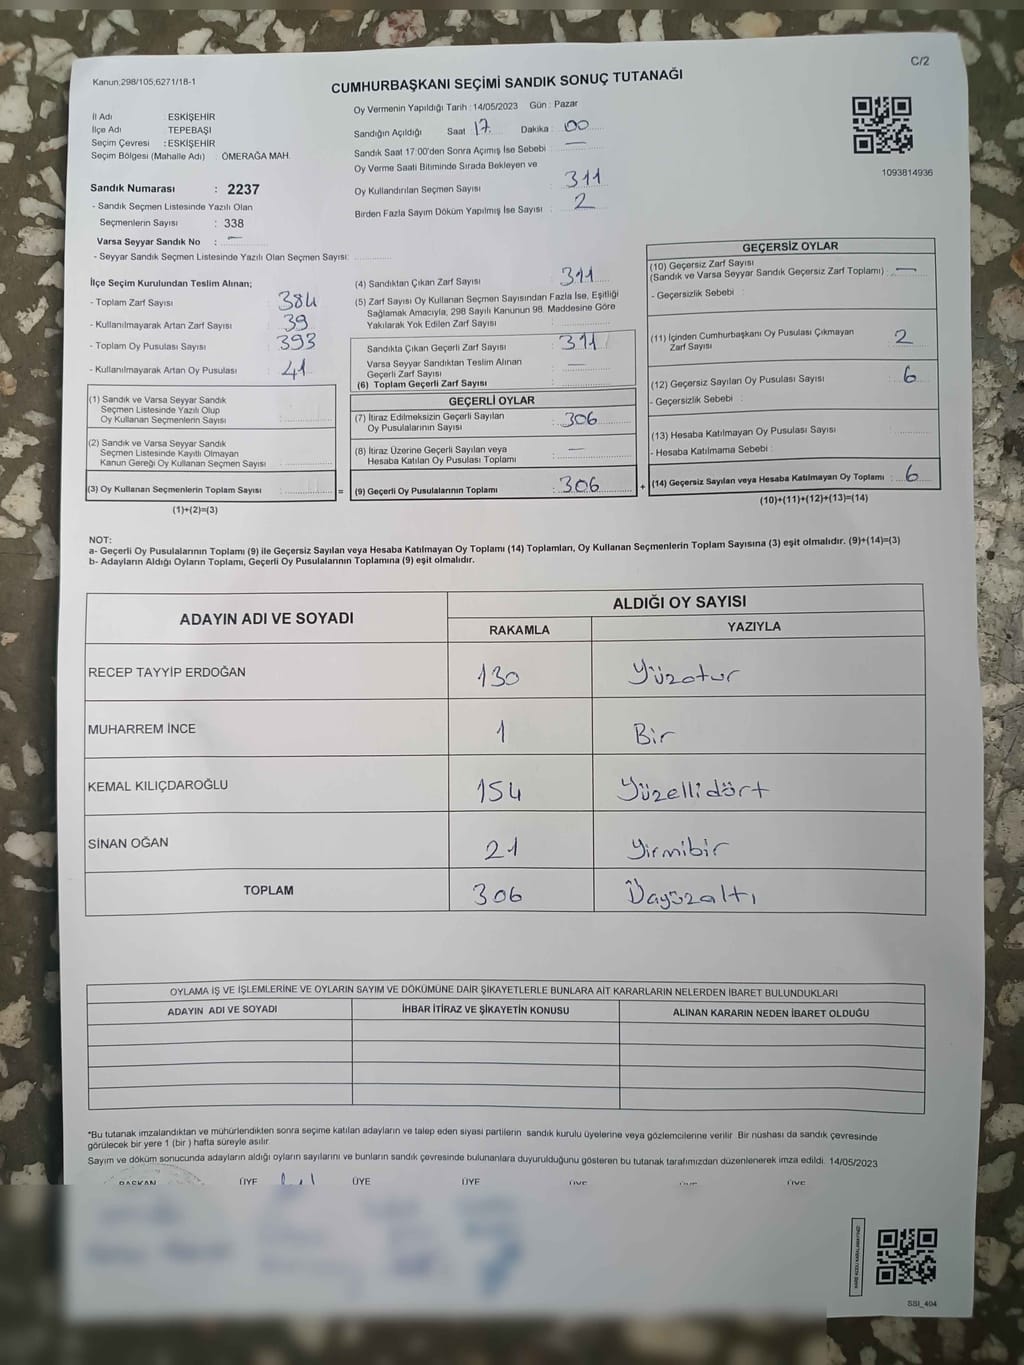 C/2
Kanun;298/105;6271/18-1
CUMHURBAŞKANI SEÇİMİ SANDIK SONUÇ TUTANAĞI
1093814936
İl Adı : ESKİŞEHİR
İlçe Adı : TEPEBAŞI
Seçim Çevresi : ESKİŞEHİR
Seçim Bölgesi (Mahalle Adı) : ÖMERAĞA MAH.
Sandık Numarası : 2237
- Sandık Seçmen Listesinde Yazılı Olan
Seçmenlerin Sayısı : 338
Varsa Seyyar Sandık No : —
- Seyyar Sandık Seçmen Listesinde Yazılı Olan Seçmen Sayısı:
Oy Vermenin Yapıldığı Tarih : 14/05/2023 Gün : Pazar
Sandığın Açıldığı Saat 17 Dakika : 00
Sandık Saat 17:00'den Sonra Açımış İse Sebebi : —
Oy Verme Saati Bitiminde Sırada Bekleyen ve
Oy Kullandırılan Seçmen Sayısı : 311
Birden Fazla Sayım Döküm Yapılmış İse Sayısı : 2
İlçe Seçim Kurulundan Teslim Alınan;
- Toplam Zarf Sayısı : 384
- Kullanılmayarak Artan Zarf Sayısı : 39
- Toplam Oy Pusulası Sayısı : 393
- Kullanılmayarak Artan Oy Pusulası : 41
(1) Sandık ve Varsa Seyyar Sandık
Seçmen Listesinde Yazılı Olup
Oy Kullanan Seçmenlerin Sayısı
(2) Sandık ve Varsa Seyyar Sandık
Seçmen Listesinde Kayıtlı Olmayan
Kanun Gereği Oy Kullanan Seçmen Sayısı
(3) Oy Kullanan Seçmenlerin Toplam Sayısı =
(1)+(2)=(3)
(4) Sandıktan Çıkan Zarf Sayısı : 311
(5) Zarf Sayısı Oy Kullanan Seçmen Sayısından Fazla İse, Eşitliği
Sağlamak Amacıyla, 298 Sayılı Kanunun 98. Maddesine Göre
Yakılarak Yok Edilen Zarf Sayısı :
Sandıkta Çıkan Geçerli Zarf Sayısı : 311
Varsa Seyyar Sandıktan Teslim Alınan
Geçerli Zarf Sayısı : —
(6) Toplam Geçerli Zarf Sayısı :
GEÇERLİ OYLAR
(7) İtiraz Edilmeksizin Geçerli Sayılan
Oy Pusulalarının Sayısı : 306
(8) İtiraz Üzerine Geçerli Sayılan veya
Hesaba Katılan Oy Pusulası Toplamı : —
(9) Geçerli Oy Pusulalarının Toplamı : 306 +
GEÇERSİZ OYLAR
(10) Geçersiz Zarf Sayısı
(Sandık ve Varsa Seyyar Sandık Geçersiz Zarf Toplamı) : —
- Geçersizlik Sebebi :
(11) İçinden Cumhurbaşkanı Oy Pusulası Çıkmayan
Zarf Sayısı : 2
(12) Geçersiz Sayılan Oy Pusulası Sayısı : 6
- Geçersizlik Sebebi :
(13) Hesaba Katılmayan Oy Pusulası Sayısı :
- Hesaba Katılmama Sebebi :
(14) Geçersiz Sayılan veya Hesaba Katılmayan Oy Toplamı : 6
(10)+(11)+(12)+(13)=(14)
NOT:
a- Geçerli Oy Pusulalarının Toplamı (9) ile Geçersiz Sayılan veya Hesaba Katılmayan Oy Toplamı (14) Toplamları, Oy Kullanan Seçmenlerin Toplam Sayısına (3) eşit olmalıdır. (9)+(14)=(3)
b- Adayların Aldığı Oyların Toplamı, Geçerli Oy Pusulalarının Toplamına (9) eşit olmalıdır.
ADAYIN ADI VE SOYADI ALDIĞI OY SAYISI
RAKAMLA YAZIYLA
RECEP TAYYİP ERDOĞAN 130 Yüzotur
MUHARREM İNCE 1 Bir
KEMAL KILIÇDAROĞLU 154 Yüzellidört
SİNAN OĞAN 21 Yirmibir
TOPLAM 306 Üçyüzaltı
OYLAMA İŞ VE İŞLEMLERİNE VE OYLARIN SAYIM VE DÖKÜMÜNE DAİR ŞİKAYETLERLE BUNLARA AİT KARARLARIN NELERDEN İBARET BULUNDUKLARI
ADAYIN ADI VE SOYADI İHBAR İTİRAZ VE ŞİKAYETİN KONUSU ALINAN KARARIN NEDEN İBARET OLDUĞU
*Bu tutanak imzalandıktan ve mühürlendikten sonra seçime katılan adayların ve talep eden siyasi partilerin sandık kurulu üyelerine veya gözlemcilerine verilir. Bir nüshası da sandık çevresinde
görülecek bir yere 1 (bir) hafta süreyle asılır.
Sayım ve döküm sonucunda adayların aldığı oyların sayılarını ve bunların sandık çevresinde bulunanlara duyurulduğunu gösteren bu tutanak tarafımızdan düzenlenerek imza edildi. 14/05/2023
BAŞKAN ÜYE ÜYE ÜYE ÜYE ÜYE ÜYE
SSI_404